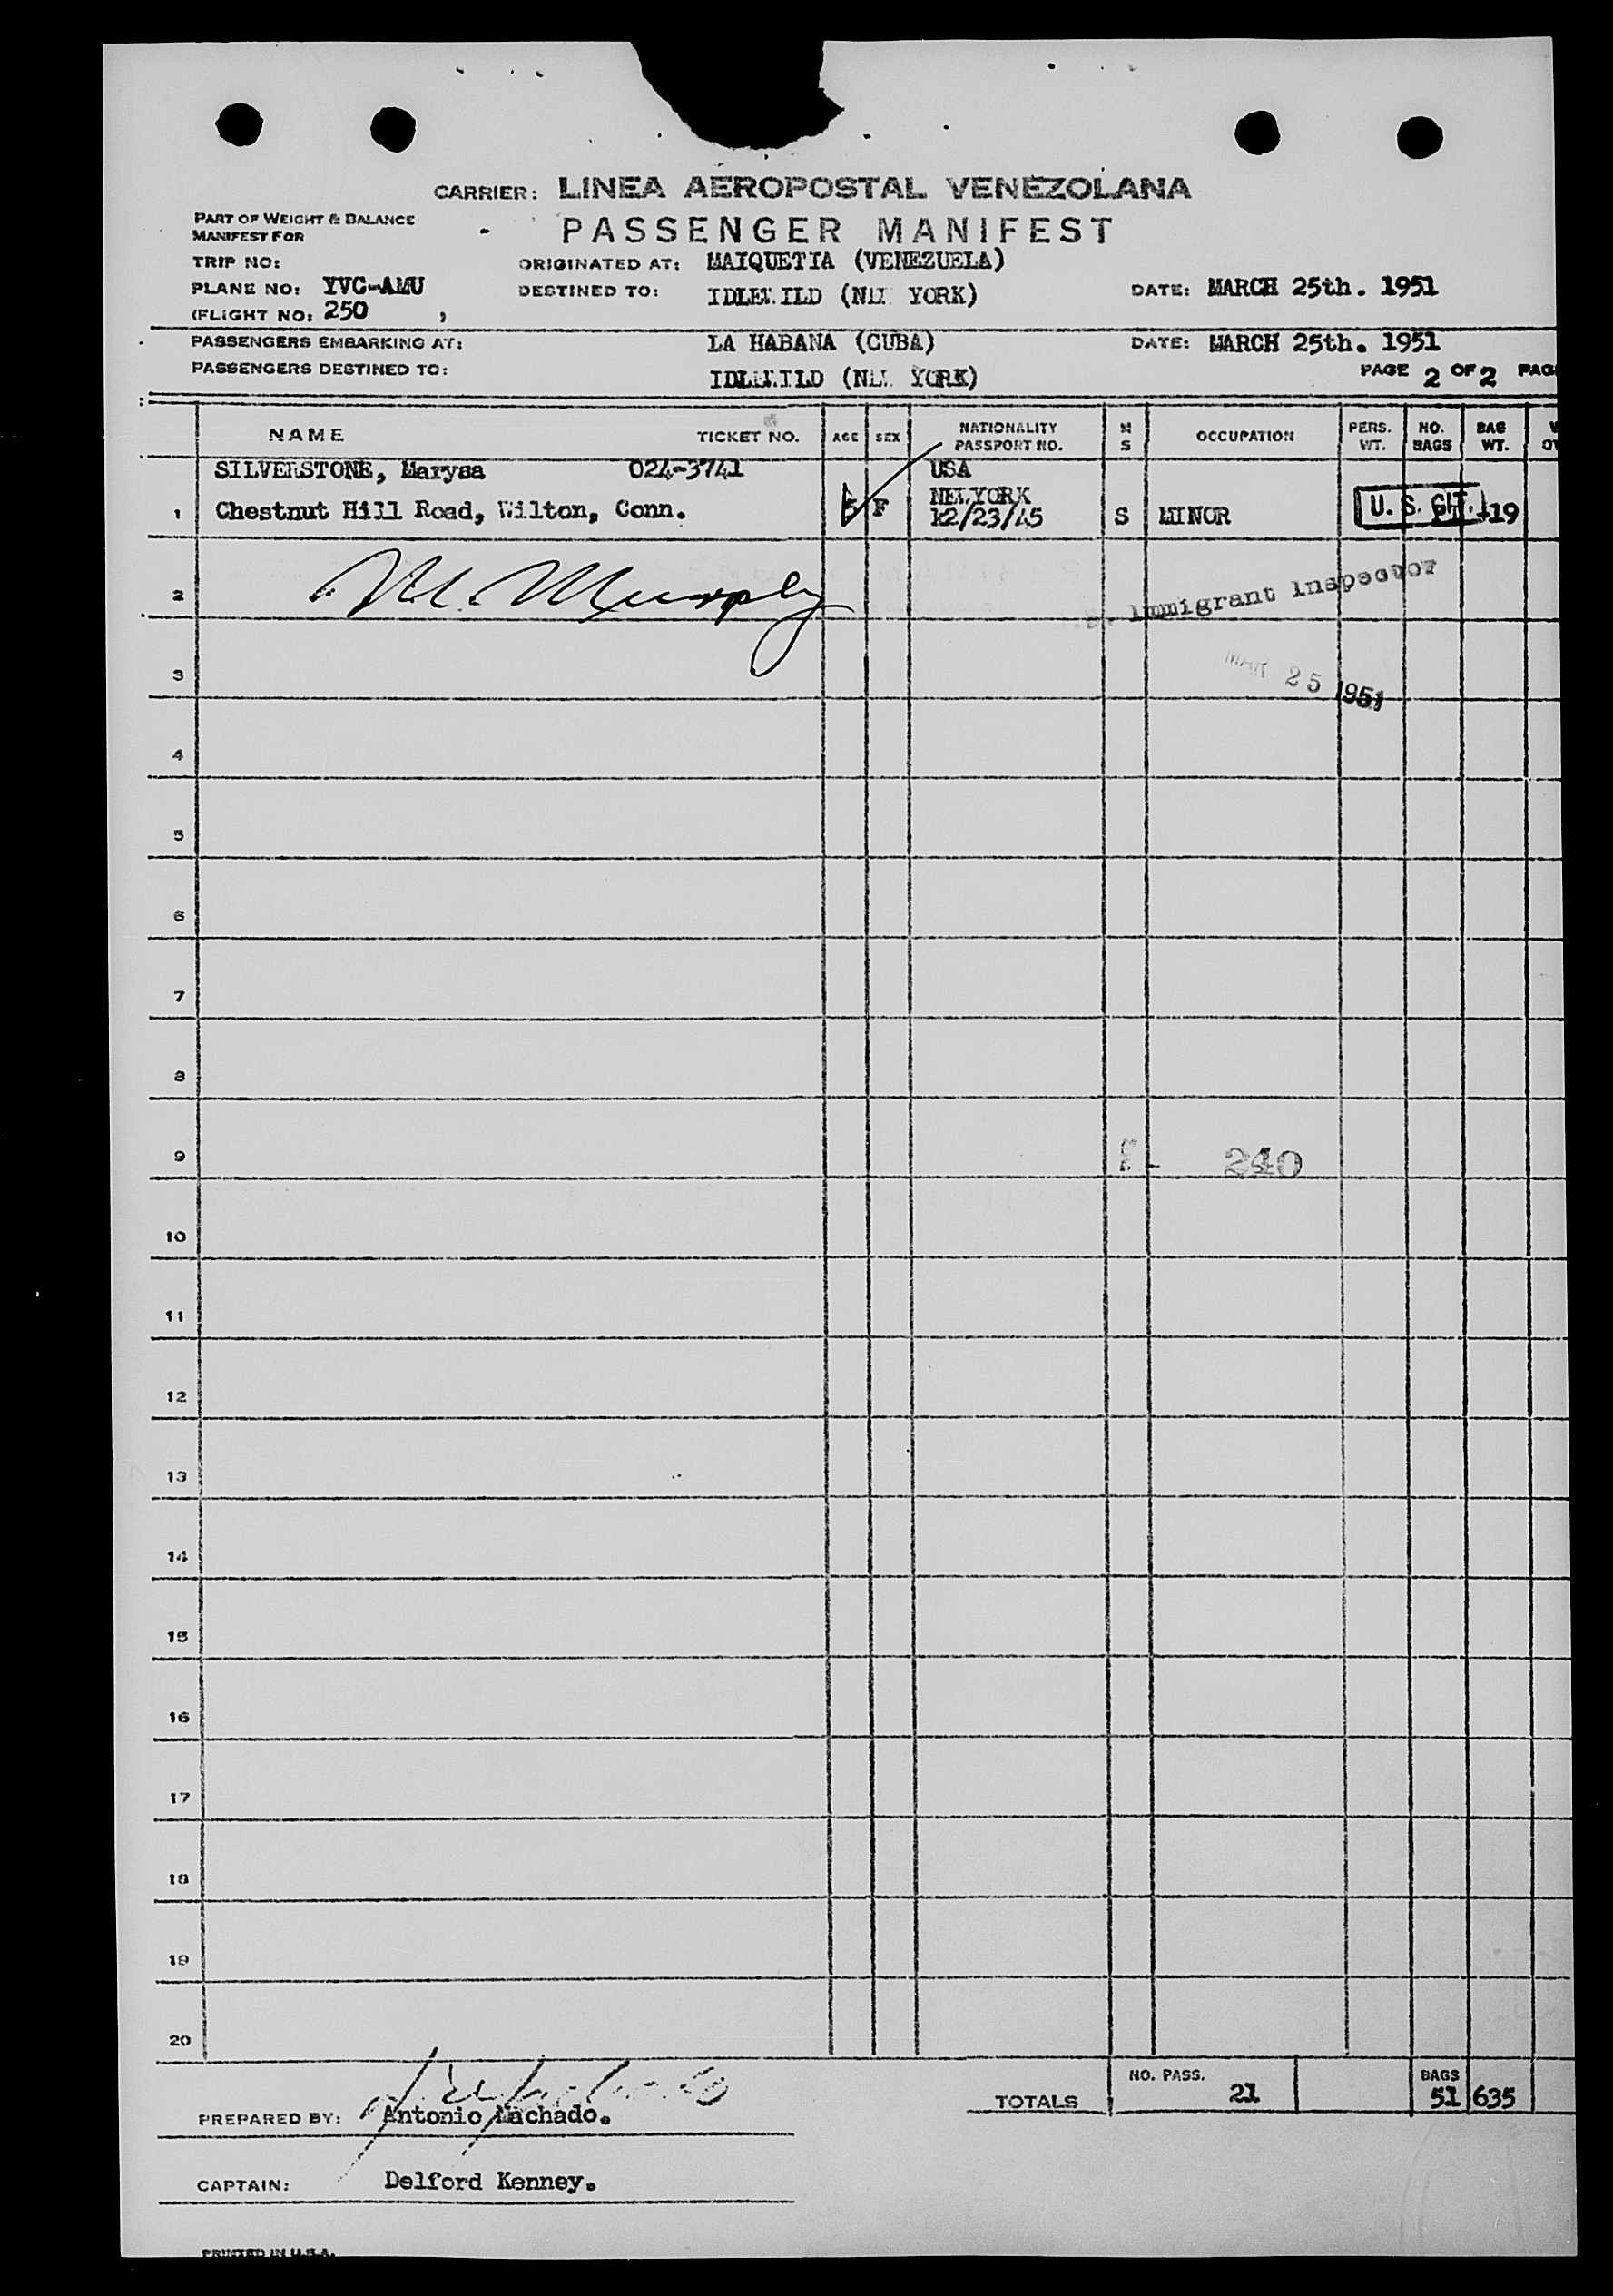 CARRIER: LINEA AEROPOSTAL VENEZOLANA
PART OF WEIGHT & BALANCE
MANIFEST FOR
PASSENGER MANIFEST
TRIP NO:
ORIGINATED AT: MAIQUETIA (VENEZUELA)
PLANE NO: YVC-AMU
DESTINED TO: IDLEWILD (NEW YORK)
DATE: MARCH 25th. 1951
(FLIGHT NO: 250 ,
PASSENGERS EMBARKING AT: LA HABANA (CUBA) DATE: MARCH 25th. 1951
PASSENGERS DESTINED TO: IDLEWILD (NEW YORK) PAGE 2 OF 2 PAG
NAME TICKET NO. AGE SEX NATIONALITY PASSPORT NO. M S OCCUPATION PERS. WT. NO. BAGS BAG WT.
SILVERSTONE, Marysa 024-3741 USA
NEWYORK
1 Chestnut Hill Road, Wilton, Conn. 5 F 12/23/45 S MINOR U. S. CIT. 19
2 M. Murphy Immigrant Inspector
3 MAR 25 1951
4
5
6
7
8
9 240
10
11
12
13
14
15
16
17
18
19
20
TOTALS NO. PASS. 21 BAGS 51 635
PREPARED BY: Antonio Machado.
CAPTAIN: Delford Kenney.
PRINTED IN U.S.A.